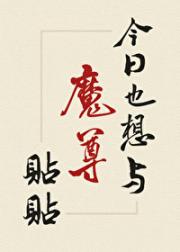 今日也想与
魔尊
贴贴